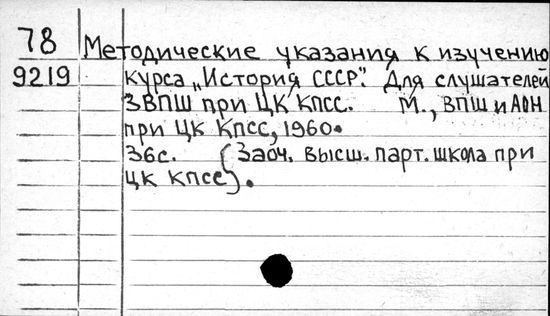 78 Методические указания к изучению
9219 курса „История СССР". Для слушателей
ЗВПШ при ЦК КПСС. М., ВПШ и АОН
при ЦК КПСС, 1960.
36с. (Заоч. высш. парт. школа при
ЦК КПСС).